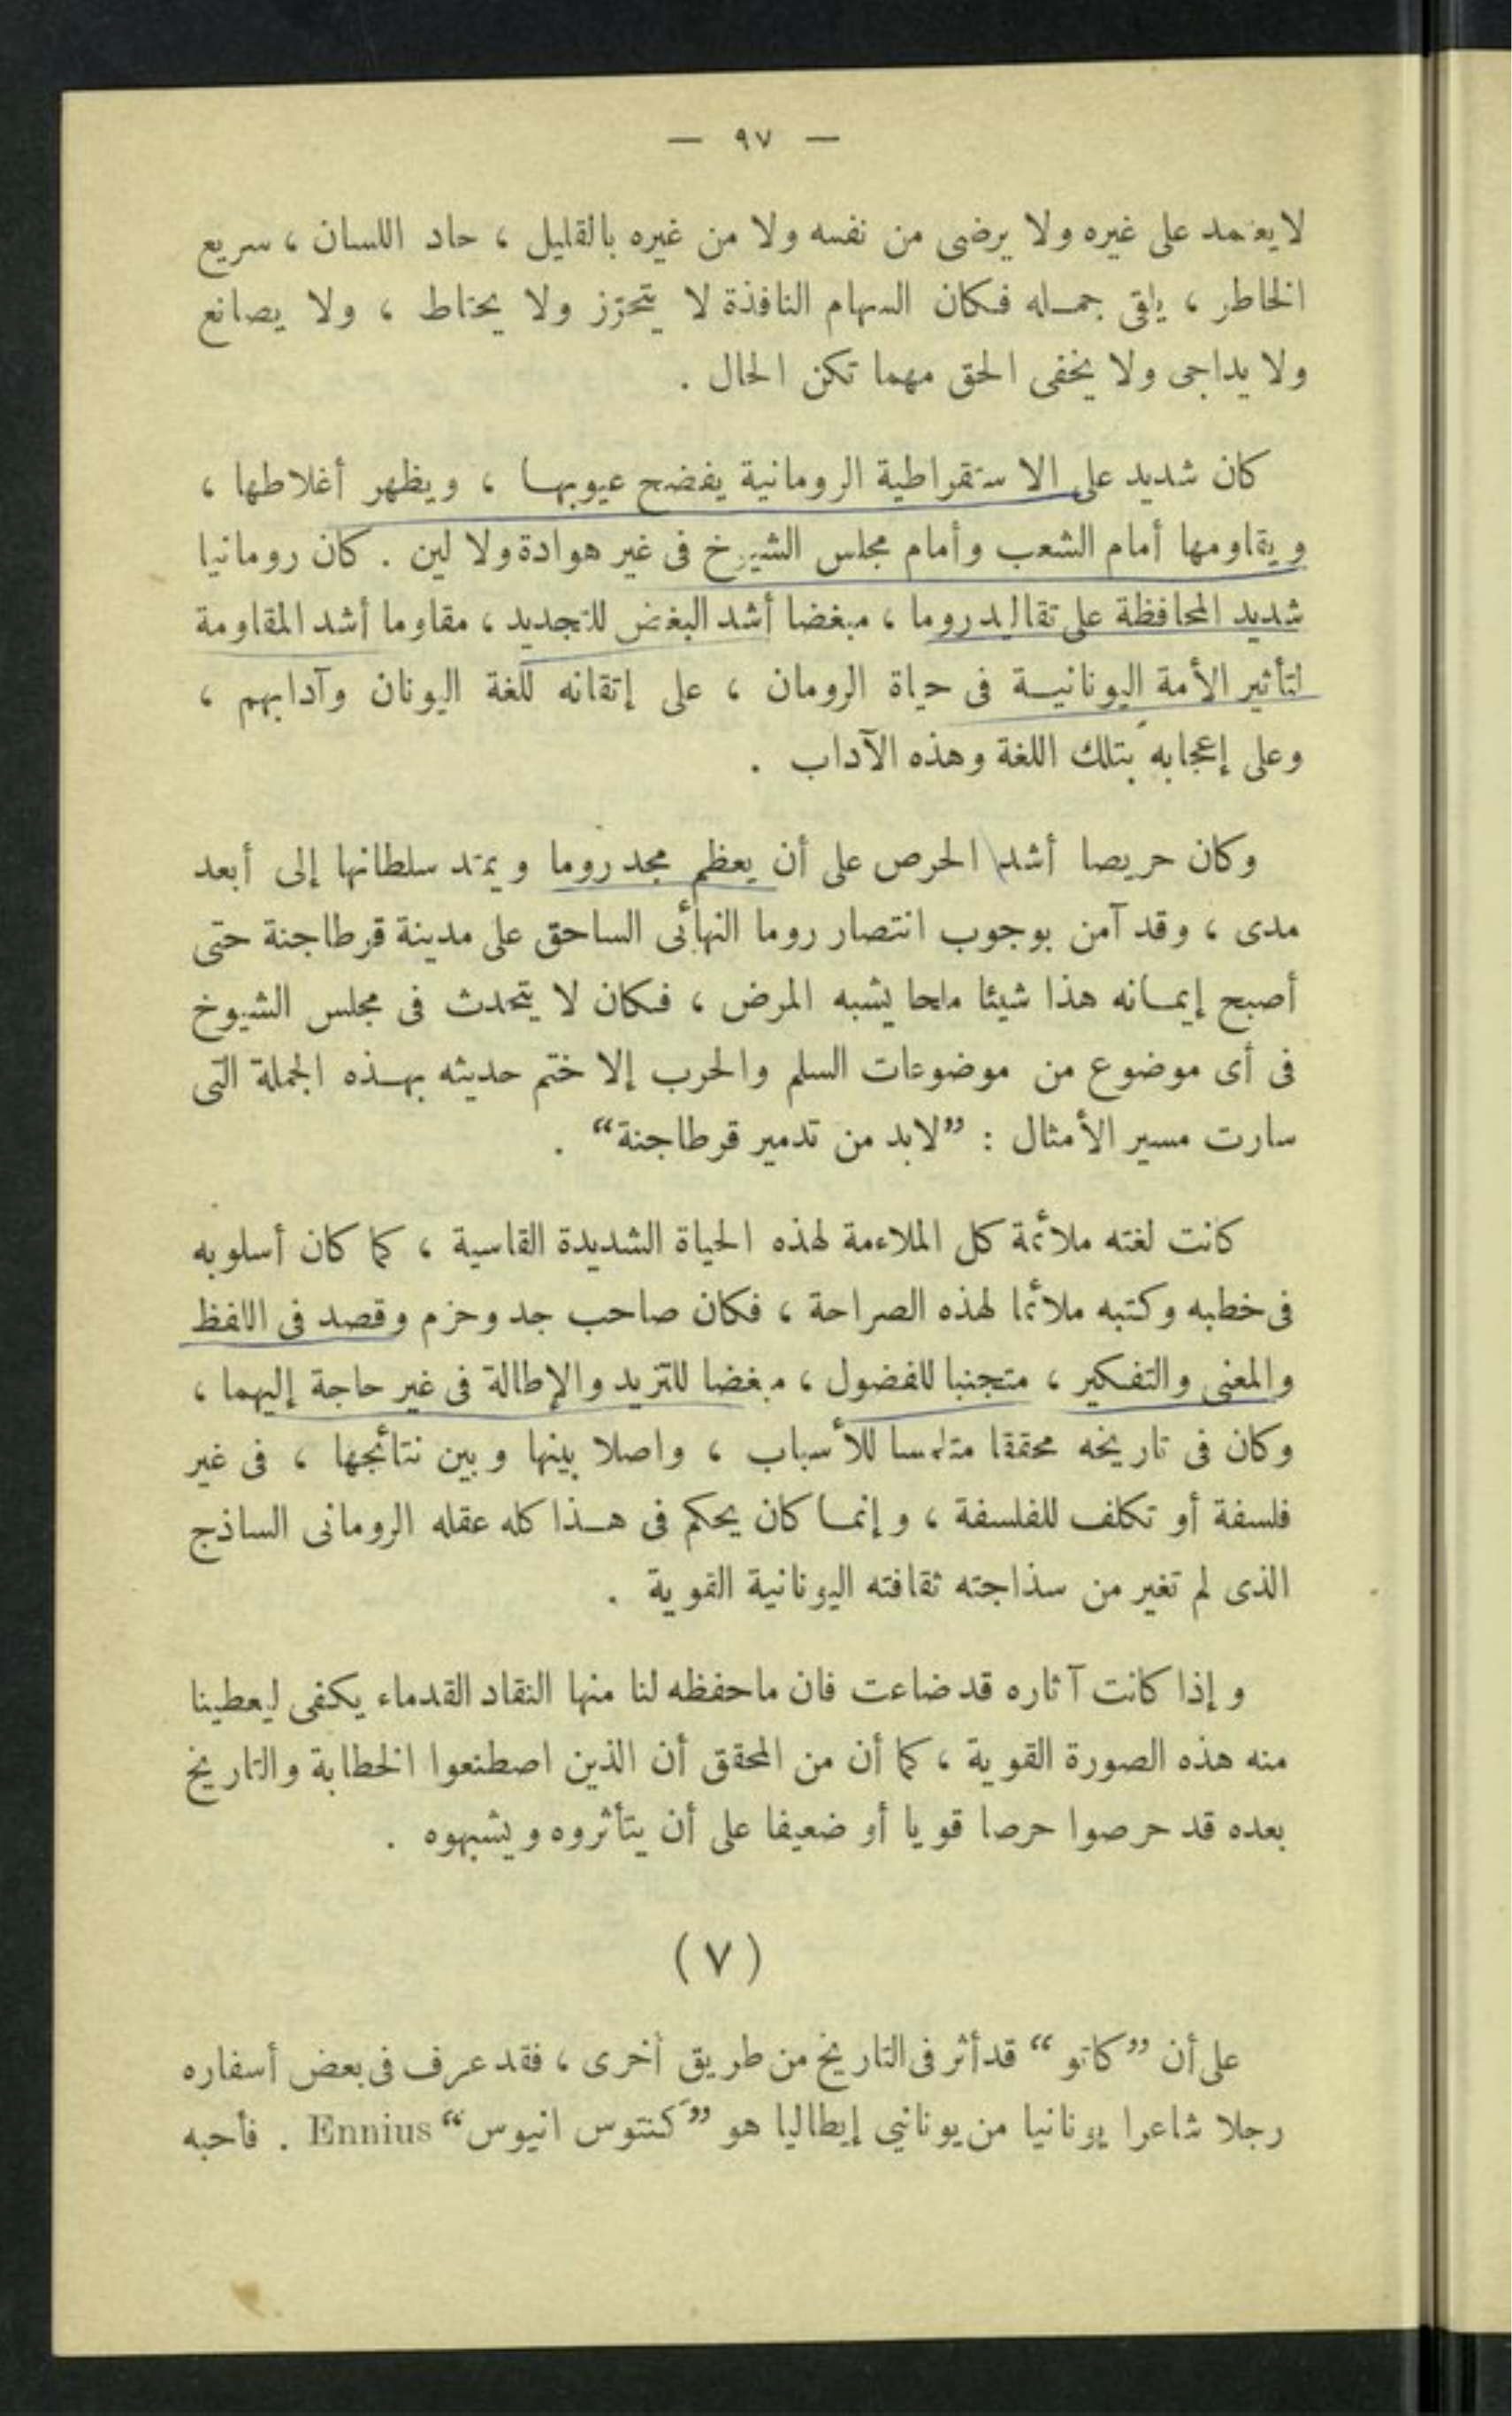 — ٩٧ —
لا يعتمد على غيره ولا يرضى من نفسه ولا من غيره بالقليل ، حاد اللسان ، سريع
الخاطر ، يلقى جمله فكان السهام النافذة لا يتحرّز ولا يحتاط ، ولا يصانع
ولا يداجى ولا يخفى الحق مهما تكن الحال .
كان شديد على الاستقراطية الرومانية يفضح عيوبها ، ويظهر أغلاطها ،
ويقاومها أمام الشعب وأمام مجلس الشيوخ فى غير هوادة ولا لين . كان رومانيا
شديد المحافظة على تقاليد روما ، مبغضا أشد البغض للتجديد ، مقاوما أشد المقاومة
لتأثير الأمة اليونانية فى حياة الرومان ، على إتقانه للغة اليونان وآدابهم ،
وعلى إعجابه بتلك اللغة وهذه الآداب .
وكان حريصا أشد الحرص على أن يعظم مجد روما ويمتد سلطانها إلى أبعد
مدى ، وقد آمن بوجوب انتصار روما النهائى الساحق على مدينة قرطاجنة حتى
أصبح إيمانه هذا شيئا ملحا يشبه المرض ، فكان لا يتحدث فى مجلس الشيوخ
فى أى موضوع من موضوعات السلم والحرب إلا ختم حديثه بهذه الجملة التى
سارت مسير الأمثال : ”لابد من تدمير قرطاجنة“ .
كانت لغته ملائمة كل الملاءمة لهذه الحياة الشديدة القاسية ، كما كان أسلوبه
فى خطبه وكتبه ملائما لهذه الصراحة ، فكان صاحب جد وحزم وقصد فى اللفظ
والمعنى والتفكير ، متجنبا للفضول ، مبغضا للتزيد والإطالة فى غير حاجة إليهما ،
وكان فى تاريخه محققا متلمسا للأسباب ، واصلا بينها وبين نتائجها ، فى غير
فلسفة أو تكلف للفلسفة ، وإنما كان يحكم فى هذا كله عقله الرومانى الساذج
الذى لم تغير من سذاجته ثقافته اليونانية القوية .
وإذا كانت آثاره قد ضاعت فان ما حفظه لنا منها النقاد القدماء يكفى ليعطينا
منه هذه الصورة القوية ، كما أن من المحقق أن الذين اصطنعوا الخطابة والتاريخ
بعده قد حرصوا حرصا قويا أو ضعيفا على أن يتأثروه ويشبهوه .
(٧)
على أن ”كاتو“ قد أثر فى التاريخ من طريق أخرى ، فقد عرف فى بعض أسفاره
رجلا شاعرا يونانيا من يونانيي إيطاليا هو ”كنتوس انيوس“ Ennius . فأحبه